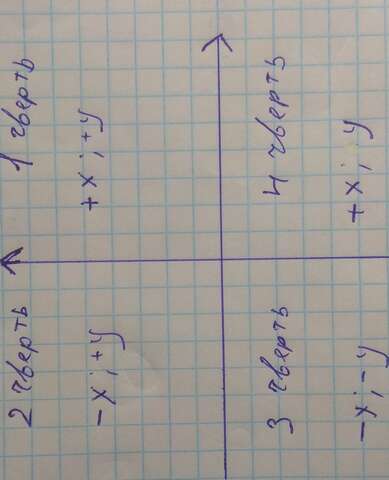 2 чверть
1 чверть
-x ; +y
+x ; +y
3 чверть
4 чверть
-x ; -y
+x ; y